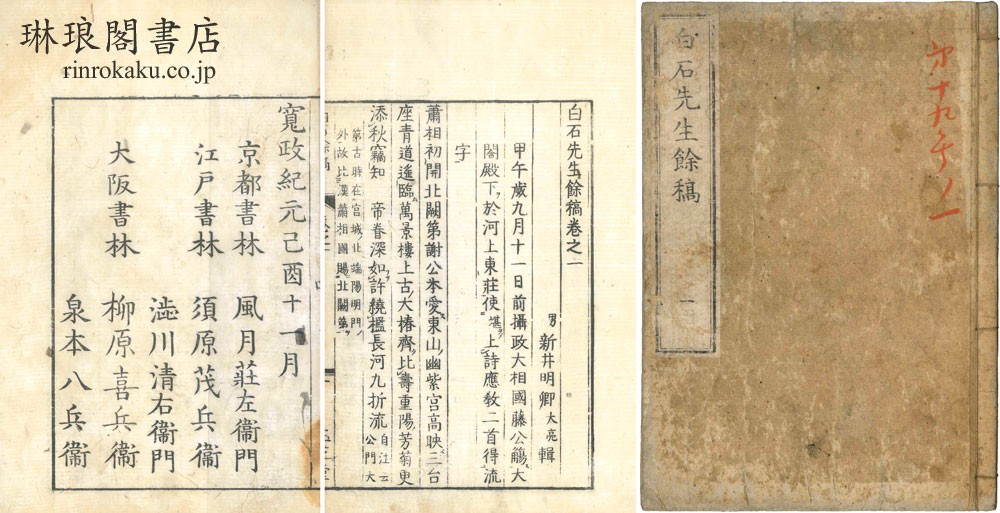 琳琅閣書店
rinrokaku.co.jp
白石先生餘稿 一
白石先生餘稿卷之一
男 新井明卿 大亮 輯
甲午歲九月十一日前攝政大相國藤公觴大
閤殿下於河上東莊使堪上詩應教二首得流
字
蕭相初開北闕第謝公本愛東山幽紫宮高映三台
座青道遙臨萬景樓上古大椿齊比壽重陽芳菊更
添秋竊知 帝眷深如許繞檻長河九折流 自注云公門大
第古時在宮城北端陽明門
外故比漢蕭相國賜北闕第
寬政紀元己酉十一月
京都書林 風月莊左衞門
江戸書林 須原茂兵衞
澁川清右衞門
大阪書林 柳原喜兵衞
泉本八兵衞